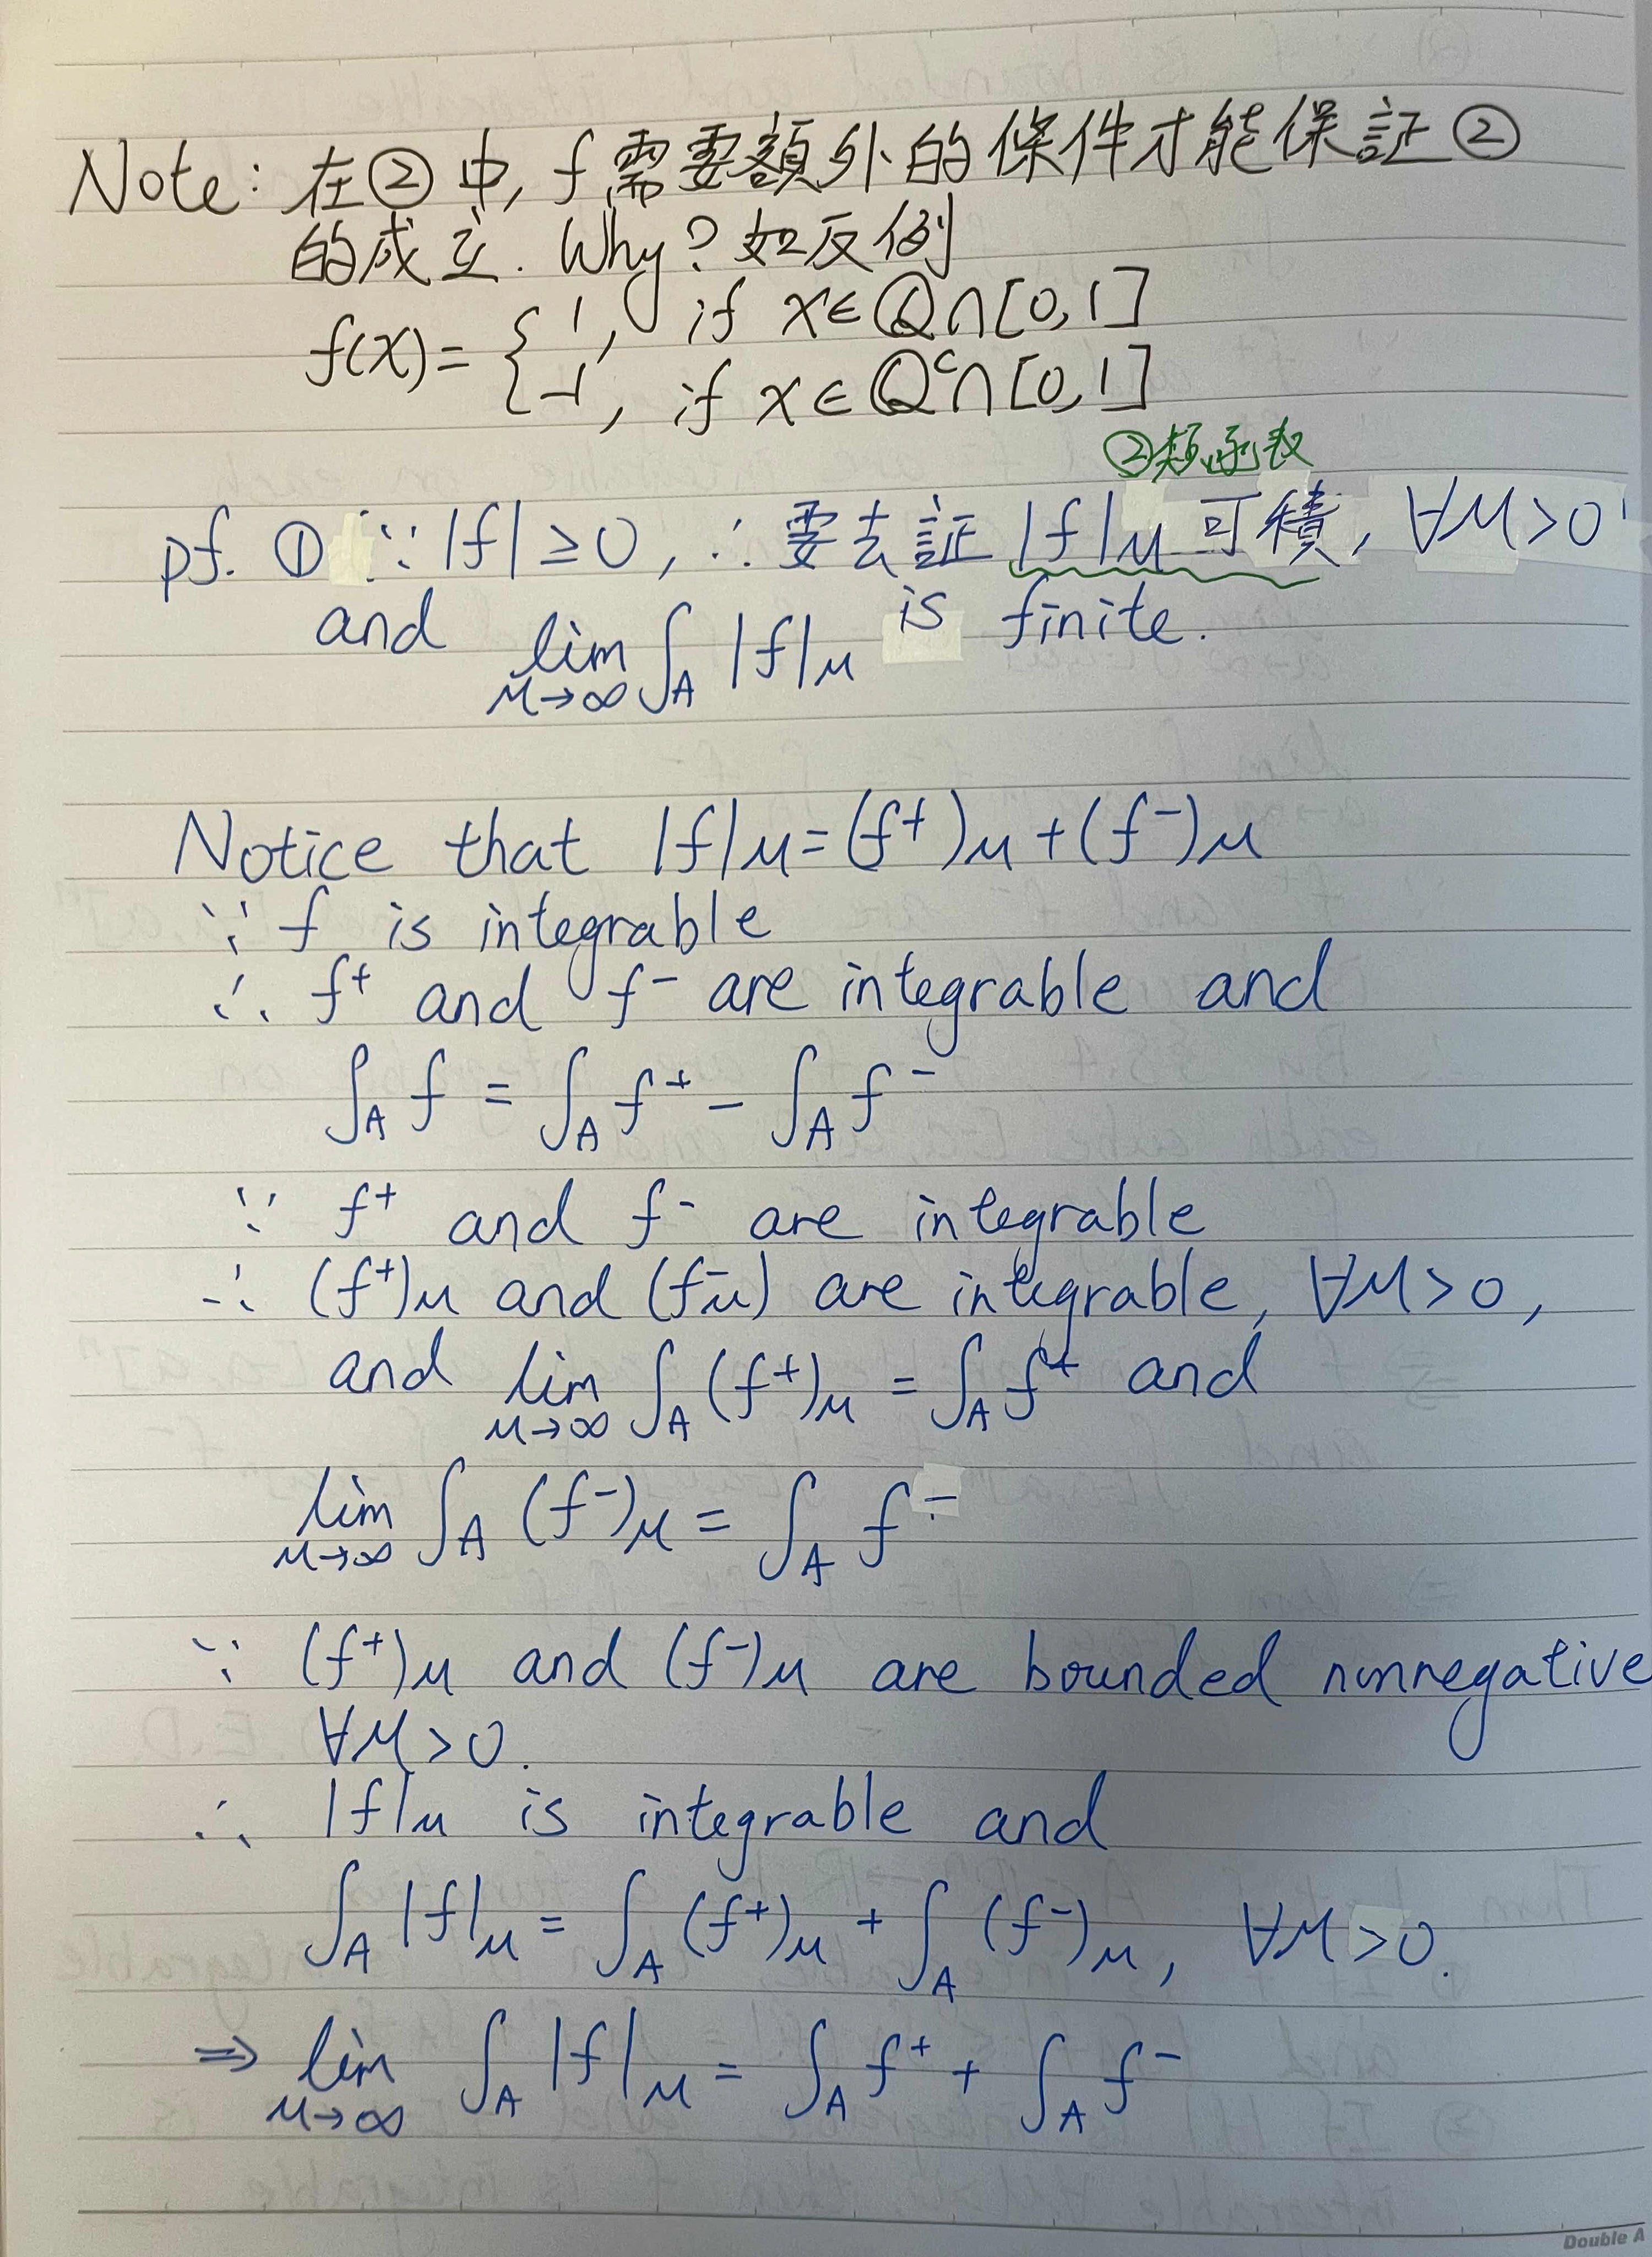 Note: 在②中, f 需要額外的條件才能保証②
的成立. Why? 如反例
f(x) = { 1, if x∈ℚ∩[0,1]
-1, if x∈ℚᶜ∩[0,1]
②類函数
pf. ① ∵ |f| ≥ 0, ∴ 要去証 |f|_M 可積, ∀M>0
and lim_{M→∞} ∫_A |f|_M is finite.
Notice that |f|_M = (f⁺)_M + (f⁻)_M
∵ f is integrable
∴ f⁺ and f⁻ are integrable and
∫_A f = ∫_A f⁺ - ∫_A f⁻
∵ f⁺ and f⁻ are integrable
∴ (f⁺)_M and (f⁻_M) are integrable, ∀M>0,
and lim_{M→∞} ∫_A (f⁺)_M = ∫_A f⁺ and
lim_{M→∞} ∫_A (f⁻)_M = ∫_A f⁻.
∵ (f⁺)_M and (f⁻)_M are bounded nonnegative
∀M>0.
∴ |f|_M is integrable and
∫_A |f|_M = ∫_A (f⁺)_M + ∫_A (f⁻)_M, ∀M>0.
⇒ lim_{M→∞} ∫_A |f|_M = ∫_A f⁺ + ∫_A f⁻
Double A